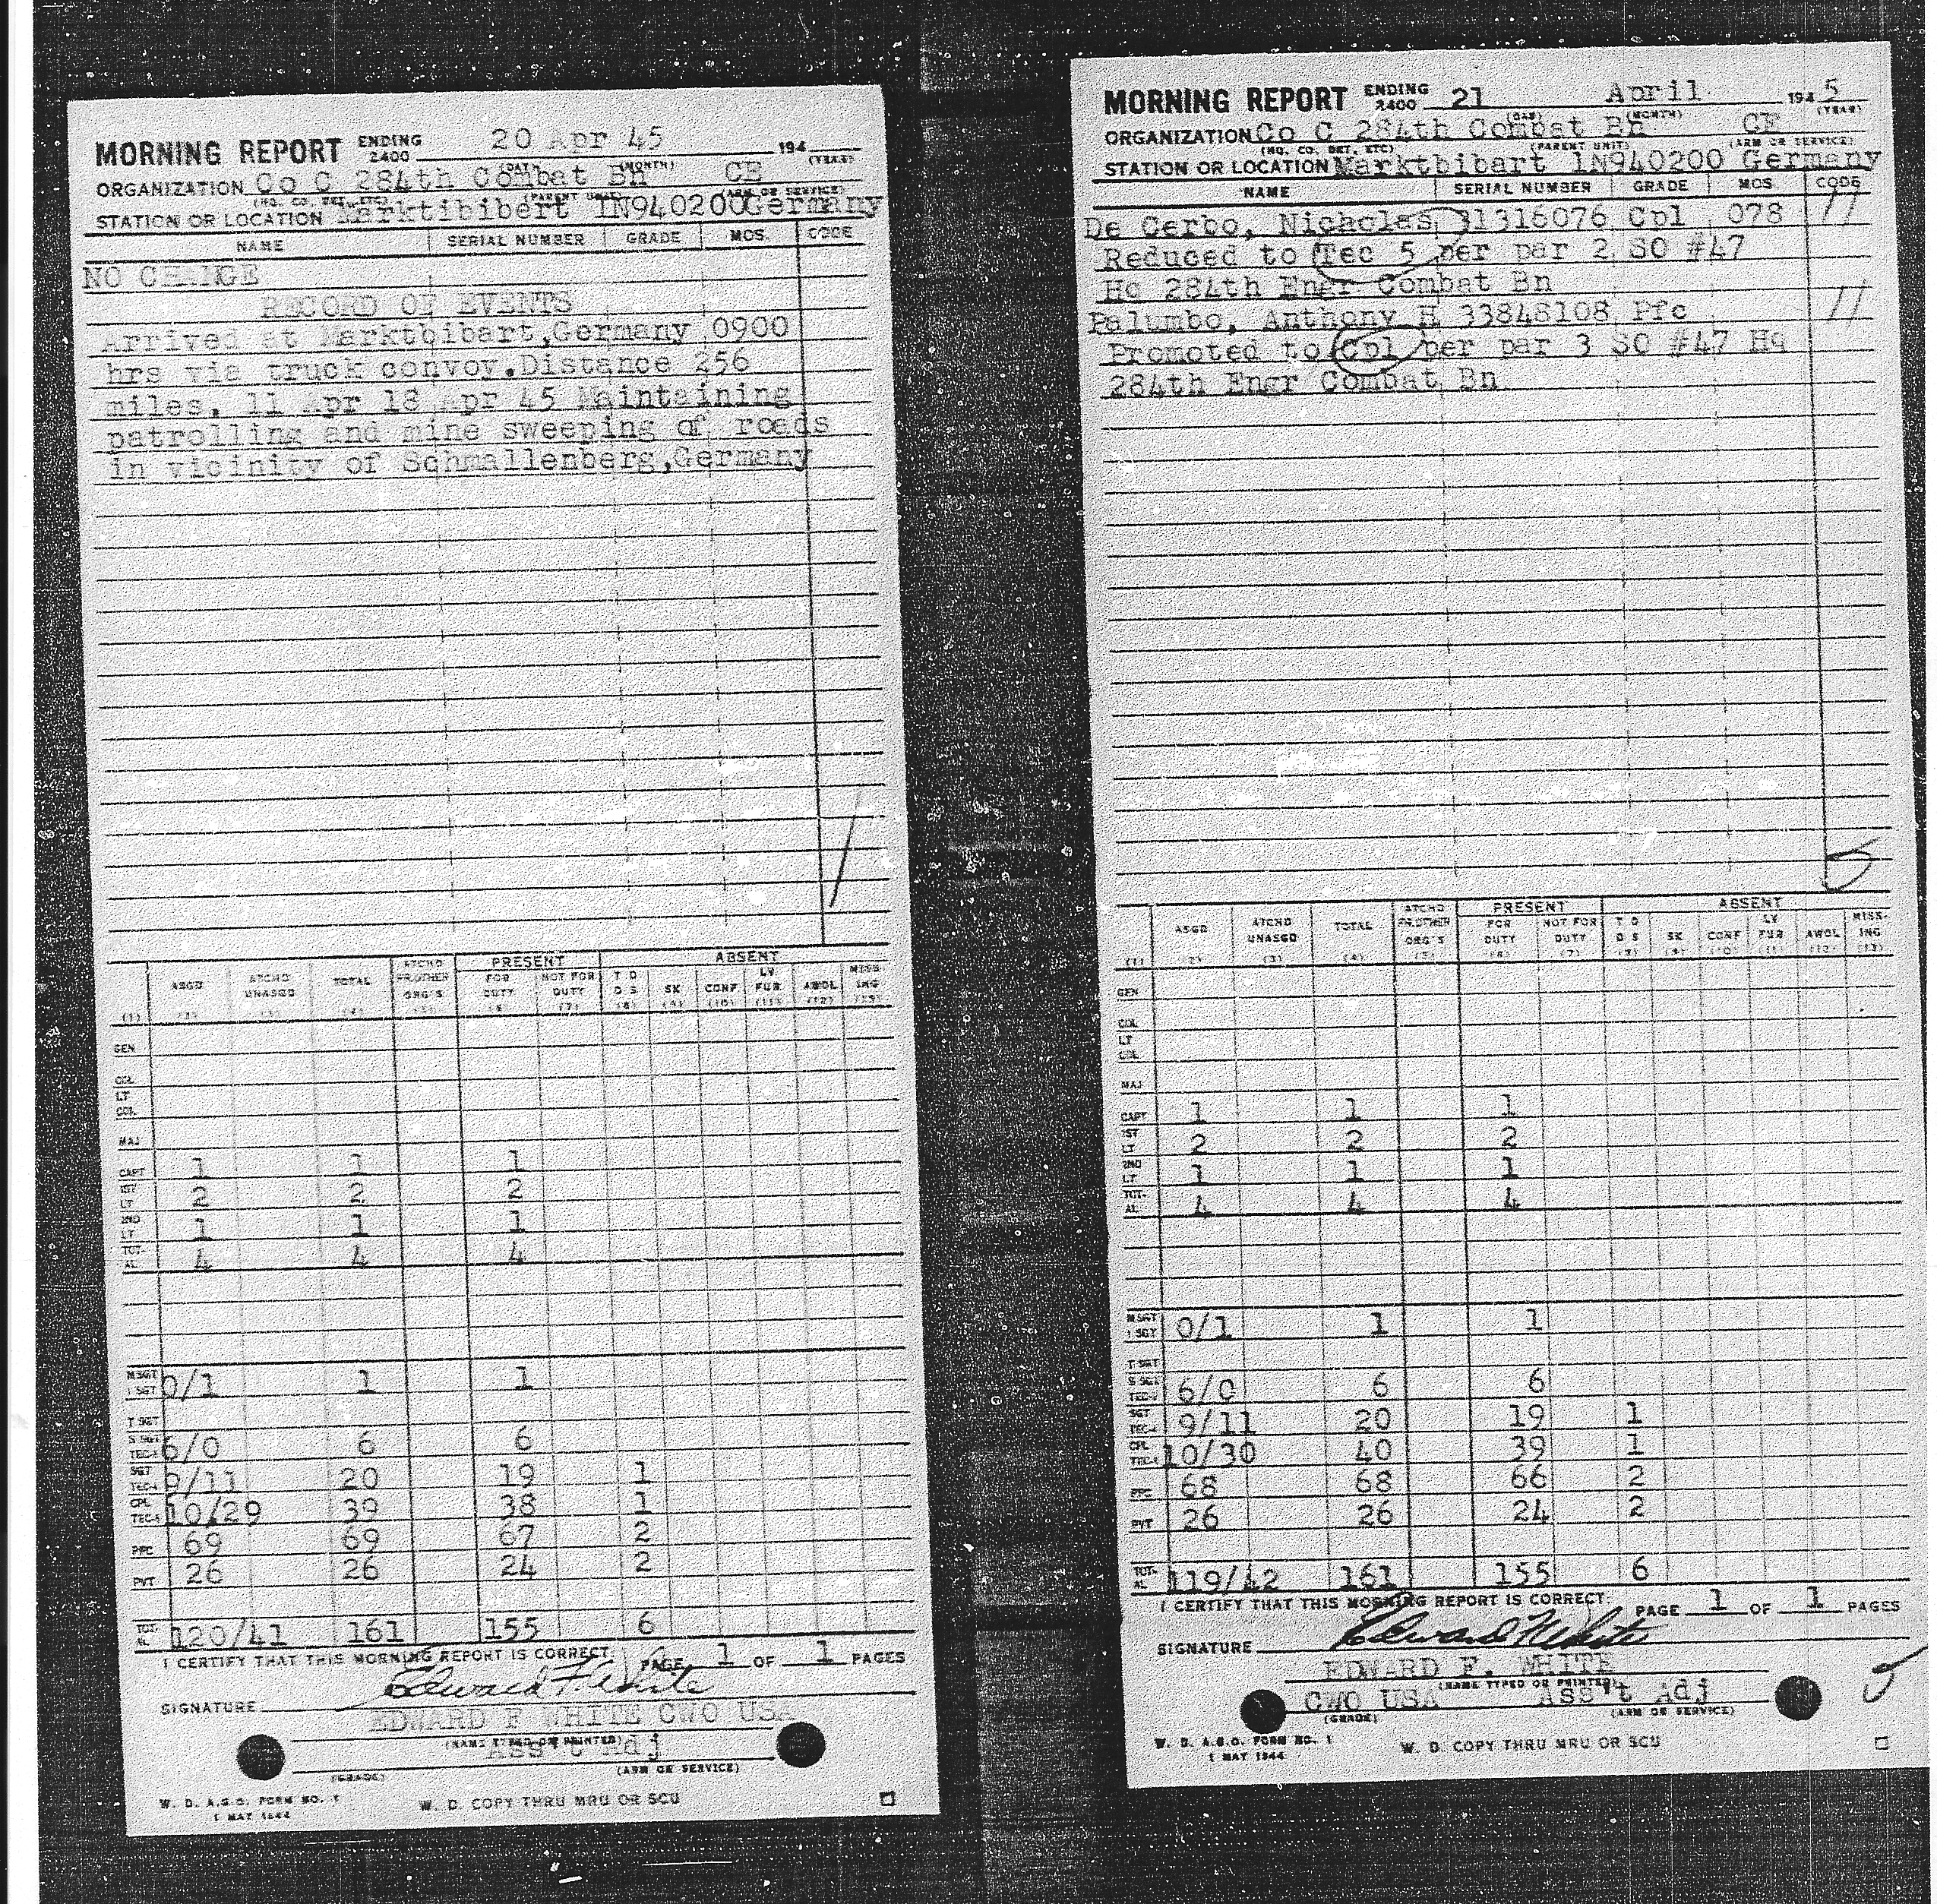 MORNING REPORT ENDING 2400 20 Apr 45 194
(DAY) (MONTH) (YEAR)
ORGANIZATION Co C 284th Combat Bn CE
(HQ. CO. DET. ETC) (PARENT UNIT) (ARM OR SERVICE)
STATION OR LOCATION Marktibibert 1N940200Germany
NAME SERIAL NUMBER GRADE MOS. CODE
NO CHANGE
RECORD OF EVENTS
Arrived at Marktbibart,Germany 0900
hrs via truck convoy.Distance 256
miles. 11 Apr 18 Apr 45 Maintaining
patrolling and mine sweeping of roads
in vicinity of Schmallenberg,Germany
PRESENT ABSENT
ASGD ATCHD UNASGD TOTAL ATCHD FR.OTHER ORG'S FOR DUTY NOT FOR DUTY T D D S SK CONF LV FUR AWOL MISS-ING
(1) (2) (3) (4) (5) (6) (7) (8) (9) (10) (11) (12) (13)
GEN
COL
LT COL
MAJ
CAPT 1 1 1
1ST LT 2 2 2
2ND LT 1 1 1
TOT-AL 4 4 4
M SGT 1 SGT 0/1 1 1
T SGT
S SGT TEC-3 6/0 6 6
SGT TEC-4 9/11 20 19 1
CPL TEC-5 10/29 39 38 1
PFC 69 69 67 2
PVT 26 26 24 2
TOT-AL 120/41 161 155 6
I CERTIFY THAT THIS MORNING REPORT IS CORRECT. PAGE 1 OF 1 PAGES
SIGNATURE Edward F White
EDWARD F WHITE CWO USA
(NAME TYPED OR PRINTED)
Ass't Adj
(GRADE) (ARM OR SERVICE)
W. D. A.G.O. FORM NO. 1
1 MAY 1944
W. D. COPY THRU MRU OR SCU
MORNING REPORT ENDING 2400 21 April 194 5
(DAY) (MONTH) (YEAR)
ORGANIZATION Co C 284th Combat Bn CE
(HQ. CO. DET. ETC) (PARENT UNIT) (ARM OR SERVICE)
STATION OR LOCATION Marktbibart 1N940200 Germany
NAME SERIAL NUMBER GRADE MOS. CODE
De Cerbo, Nicholas 31316076 Cpl 078 11
Reduced to Tec 5 per par 2 SO #47
Hq 284th Engr Combat Bn
Palumbo, Anthony H 33848108 Pfc 11
Promoted to Cpl per par 3 SO #47 Hq
284th Engr Combat Bn
5
PRESENT ABSENT
ASGD ATCHD UNASGD TOTAL ATCHD FR.OTHER ORG'S FOR DUTY NOT FOR DUTY T D D S SK CONF LV FUR AWOL MISS-ING
(1) (2) (3) (4) (5) (6) (7) (8) (9) (10) (11) (12) (13)
GEN
COL
LT COL
MAJ
CAPT 1 1 1
1ST LT 2 2 2
2ND LT 1 1 1
TOT-AL 4 4 4
M SGT 1 SGT 0/1 1 1
T SGT
S SGT TEC-3 6/0 6 6
SGT TEC-4 9/11 20 19 1
CPL TEC-5 10/30 40 39 1
PFC 68 68 66 2
PVT 26 26 24 2
TOT-AL 119/42 161 155 6
I CERTIFY THAT THIS MORNING REPORT IS CORRECT. PAGE 1 OF 1 PAGES
SIGNATURE Edward F White
EDWARD F. WHITE
(NAME TYPED OR PRINTED)
CWO USA Ass't Adj
(GRADE) (ARM OR SERVICE)
W. D. A.G.O. FORM NO. 1
1 MAY 1944
W. D. COPY THRU MRU OR SCU